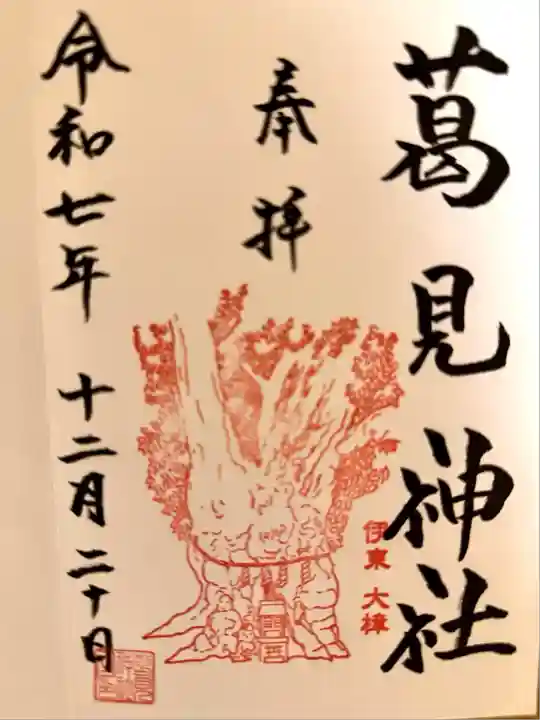 葛見神社
奉拝
伊東 大樟
令和七年 十二月 二十日